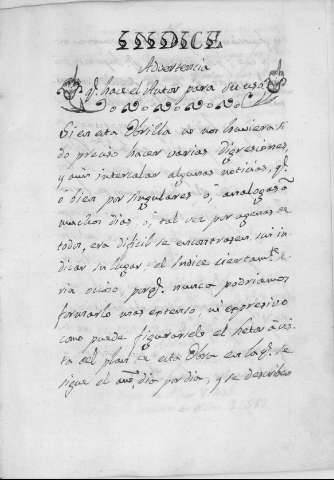 INDICE
Advertencia
q.e hace el Autor para su uso
Si en esta Obrilla no nos huviera si
do preciso hacer varias digresiones,
y aun intercalar algunas noticias, q.e
ò bien por singulares ò, analogas à
muchos dias ò, tal vez por agenas en
todos, era dificil se encontrasen sin in
dicar su lugar; el Indice ciertam.te se
ria ocioso, porq.e nunca podriamos
formarlo mas extenso, ni expresivo
como puede figurarselo el Letor à vis
ta del plan de esta Obra en la q.e se
sigue el año, dia por dia, y se describen